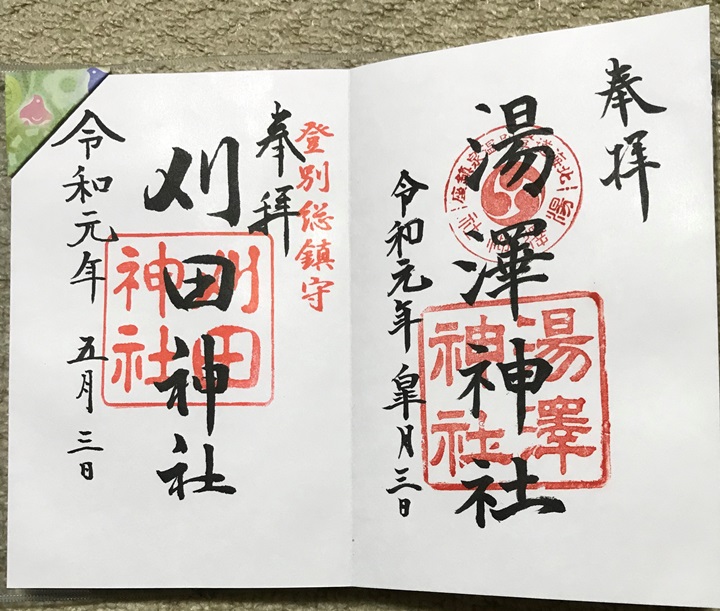 奉拝
湯澤神社
湯澤
神社
令和元年皐月三日
登別総鎮守
奉拝
刈田神社
刈田
神社
令和元年 五月三日